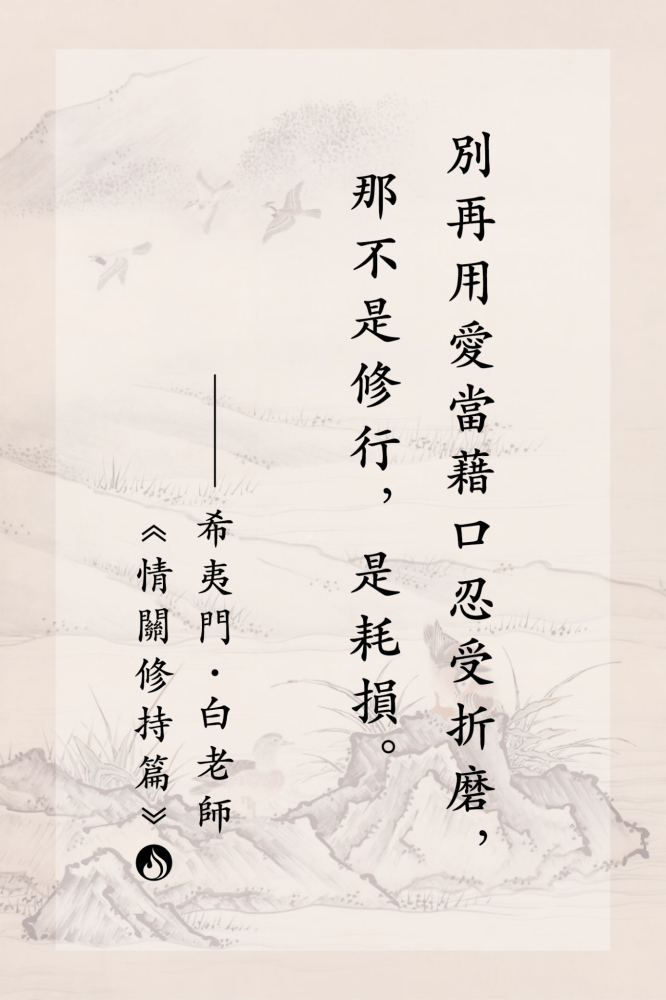 別再用愛當藉口忍受折磨，
那不是修行，是耗損。
——希夷門・白老師
《情關修持篇》